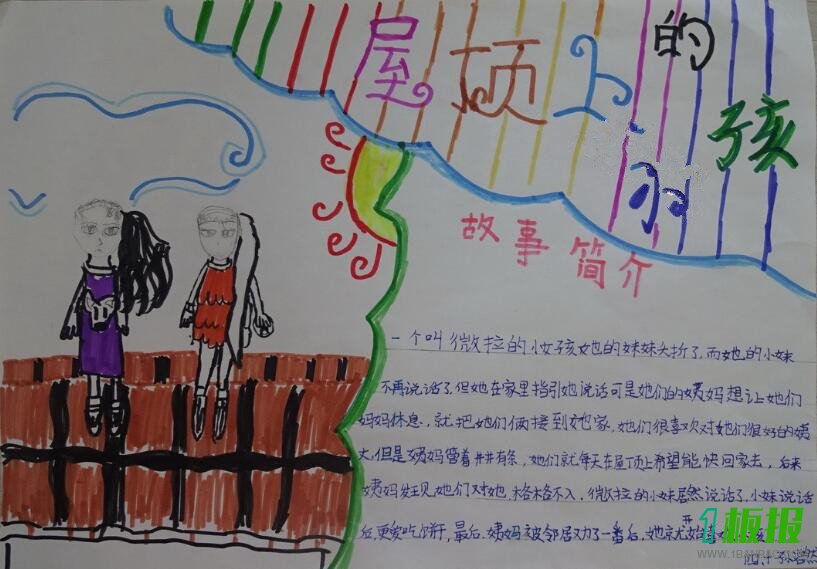 屋顶上的
孩
故事简介
一个叫微拉的小女孩她的妹妹夭折了,而她的小妹
不再说话了,但她在家里指引她说话可是她们的姨妈想让她们
妈妈休息,就把她们俩接到她家,她们很喜欢对她们很好的姨
丈,但是姨妈管着井井有条,她们就每天在屋顶上希望能快回家去,后来
姨妈发现她们对她格格不入,微拉的小妹居然说话了,小妹说话
后,更爱吃饼干,最后,姨妈被邻居劝了一番后,她就开始
四、十 孙
1板报
WWW.1BANBAO.COM